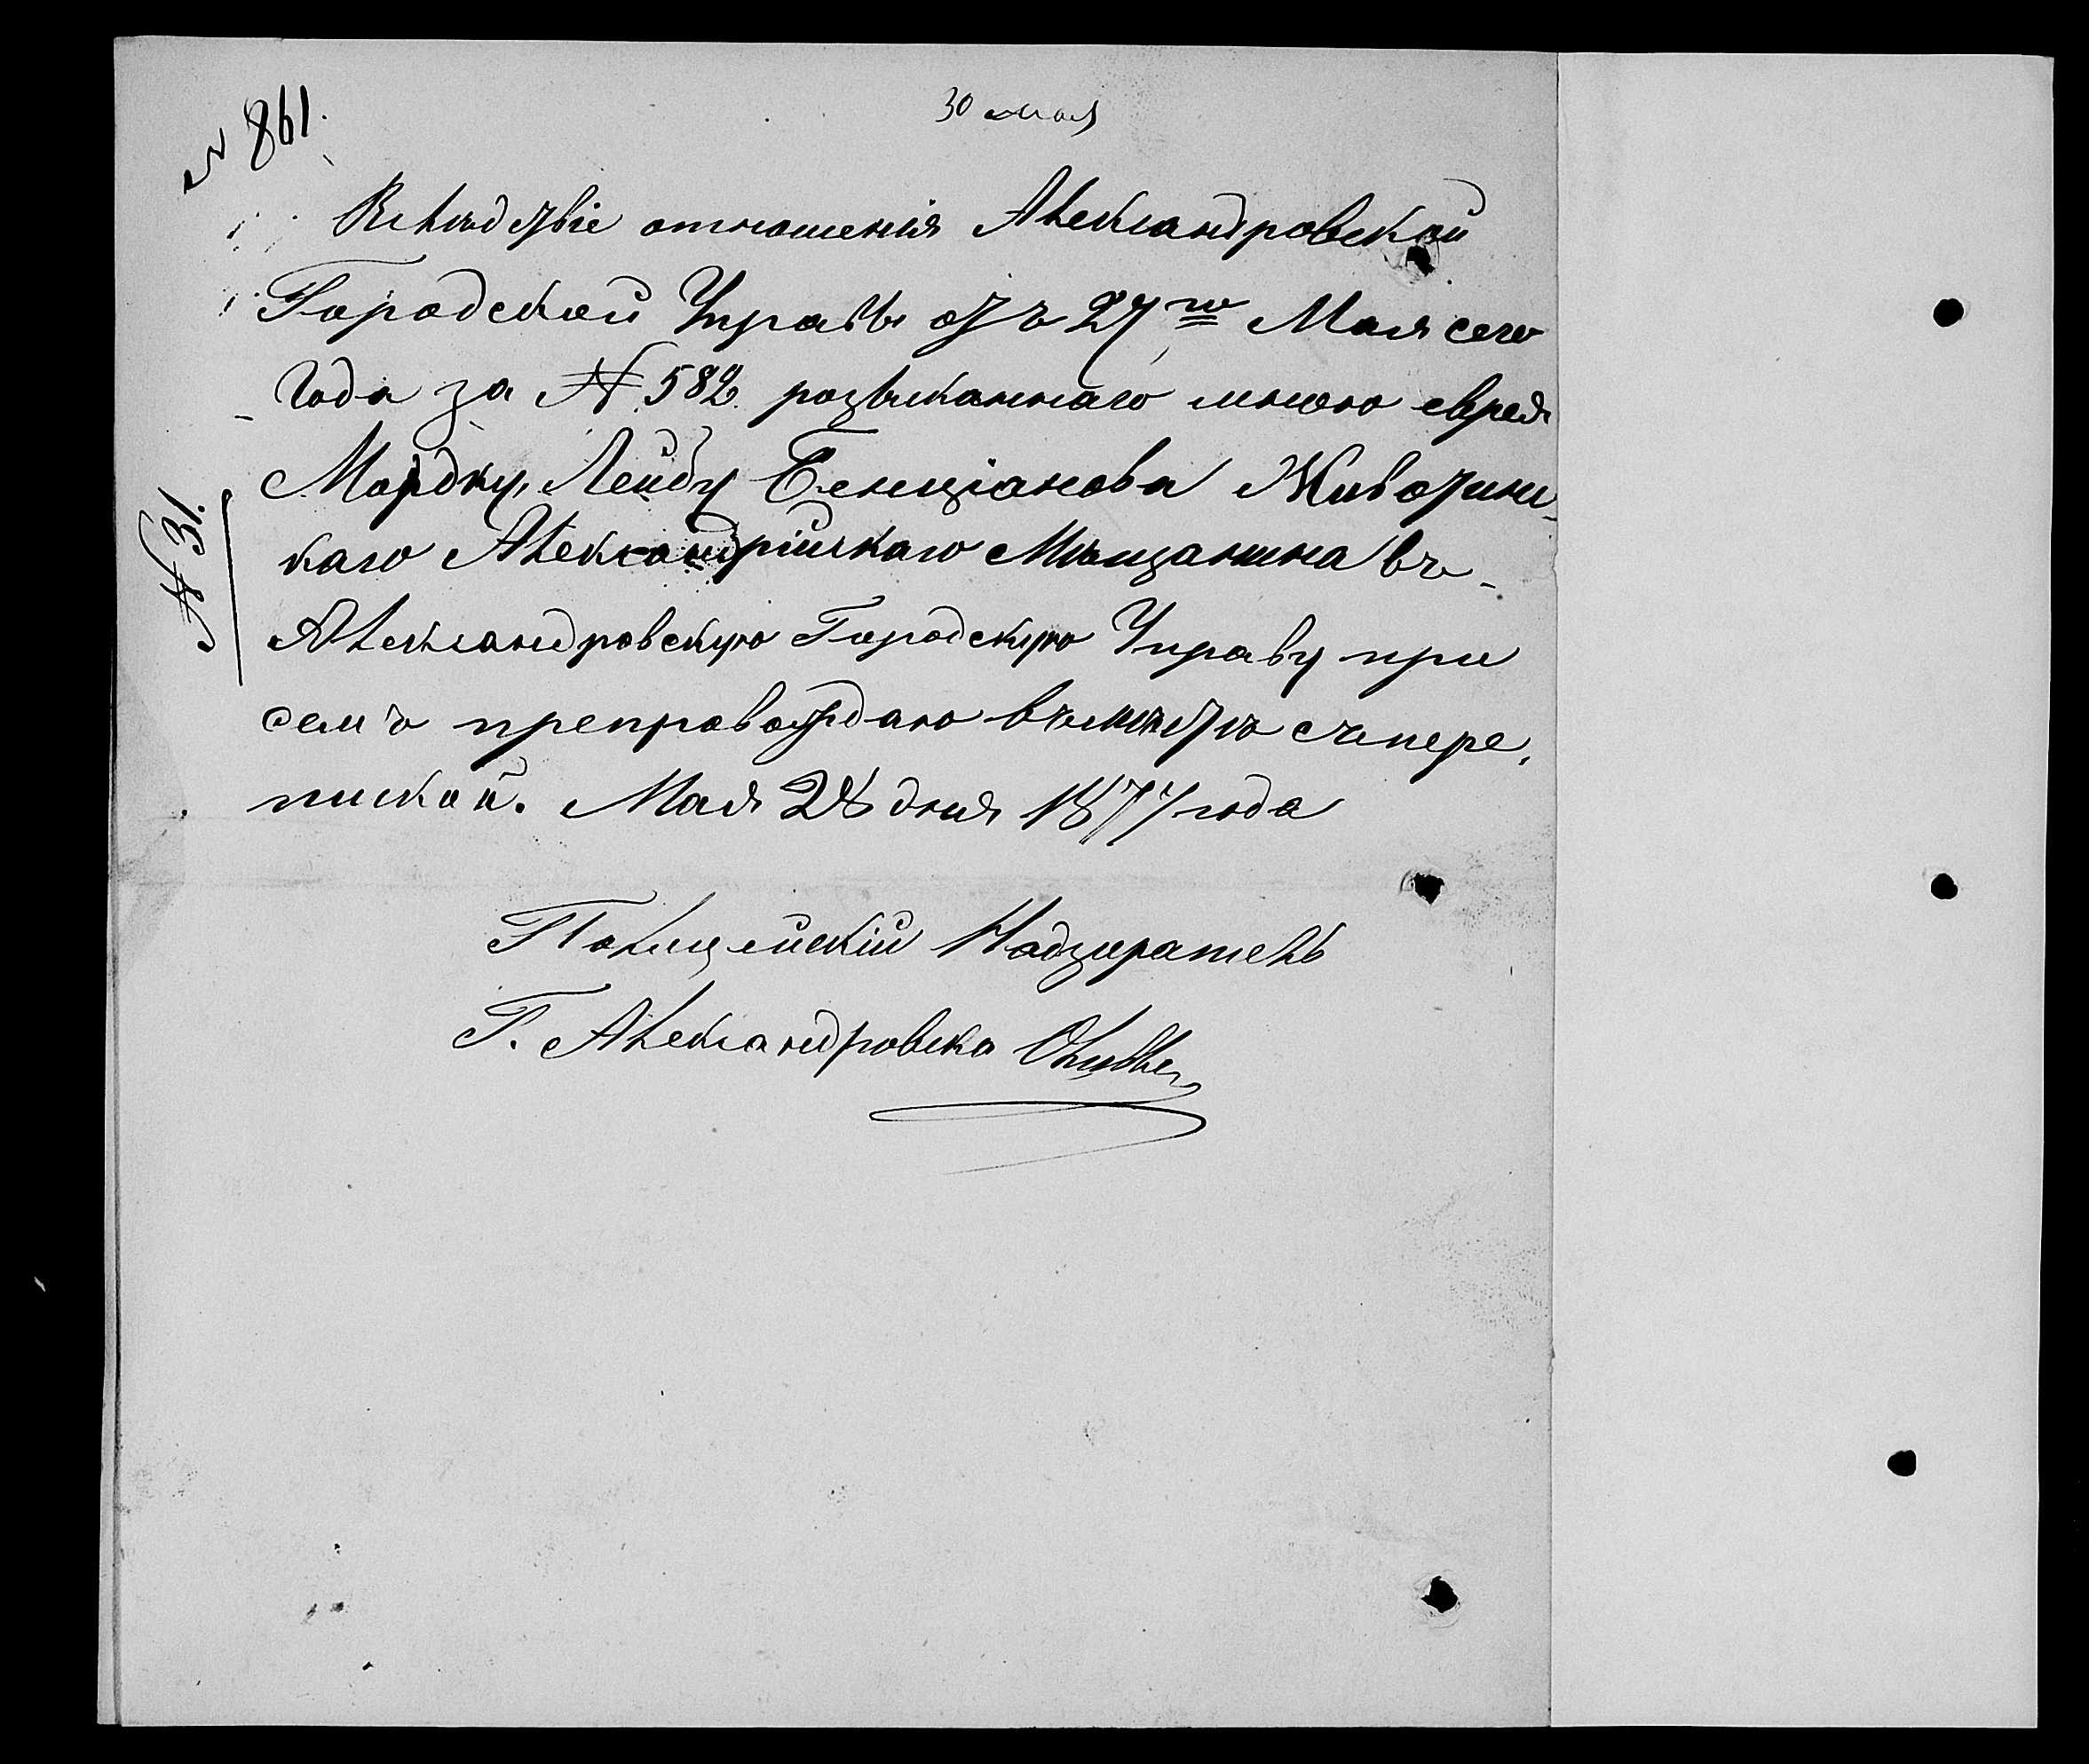 № 861.
30 мая
Вслѣдствіе отношенія Александровской
Городской Управы отъ 27го Мая сего
Года за № 582 розысканнаго мною еврея
Мордку, Лейбу Бенціанова Животин-
скаго Александрійскаго Мѣщанина въ
Александровскую Городскую Управу при
семъ препровождаю вмѣстѣ съ пере-
пиской. Мая 28 дня 1877 года
№ 31.
Полицейскій Надзиратель
Г. Александровска